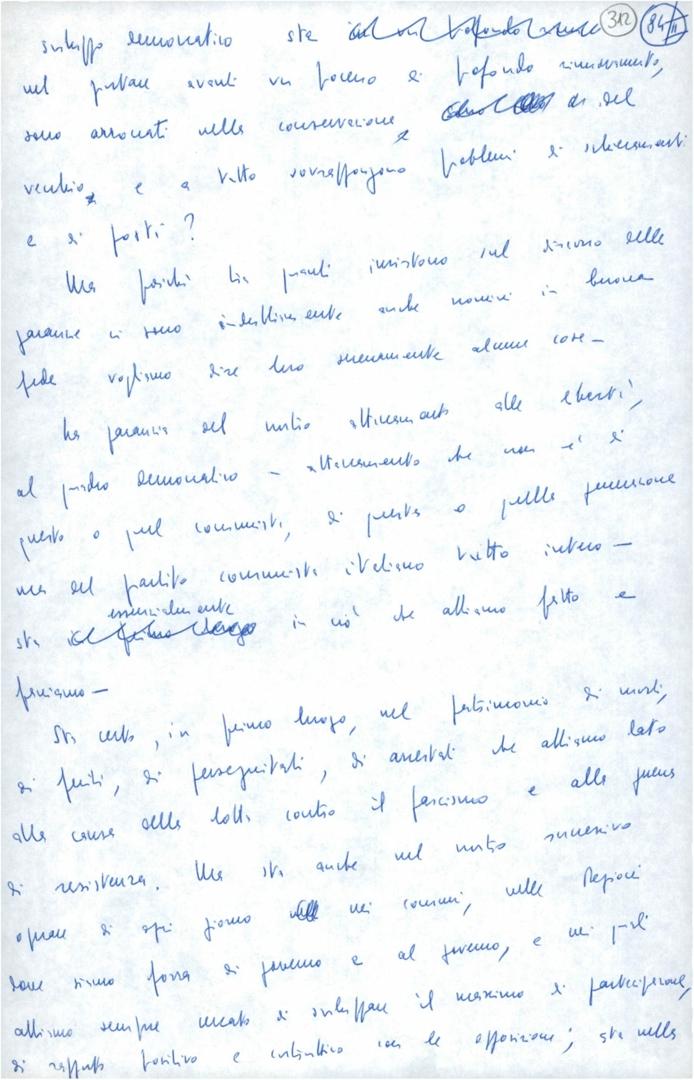 312 84/II
sviluppo democratico sta
nel portare avanti un processo di profondo rinnovamento,
sono arroccati nella conservazione del
vecchio, e a tutto sovrappongono problemi di schieramenti
e di posti?
Ma poiché tra quanti insistono sul discorso delle
garanzie vi sono indubbiamente anche uomini in buona
fede vogliamo dire loro serenamente alcune cose -
La garanzia del nostro attaccamento alle libertà,
al quadro democratico - attaccamento che non è di
questo o quel comunista, di questa o quella generazione
ma del partito comunista italiano tutto intero -
essenzialmente
sta in ciò che abbiamo fatto e
facciamo -
Sta certo, in primo luogo, nel patrimonio di morti,
di feriti, di perseguitati, di arrestati che abbiamo dato
alla causa della lotta contro il fascismo e alla guerra
di resistenza. Ma sta anche nel nostro successivo
operare di ogni giorno nei comuni, nelle Regioni
dove siamo forza di governo e al governo, e nei quali
abbiamo sempre cercato di sviluppare il massimo di partecipazione,
di rapporto positivo e costruttivo con le opposizioni; sta nella